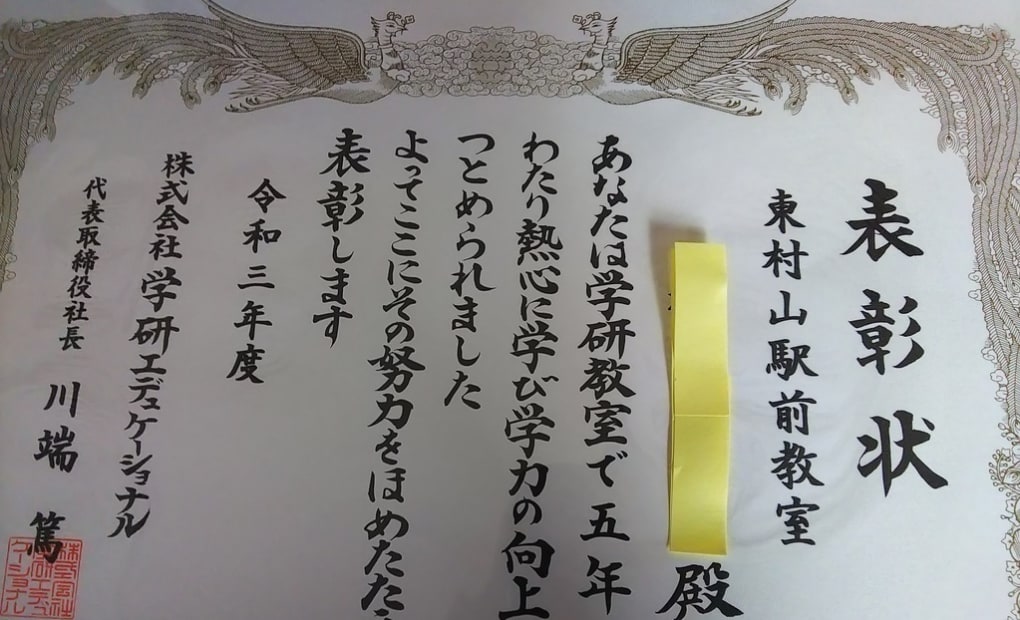 表彰状
東村山駅前教室
殿
あなたは学研教室で五年
わたり熱心に学び学力の向上
つとめられました
よってここにその努力をほめたた
表彰します
令和三年度
株式会社学研エデュケーショナル
代表取締役社長 川端篤